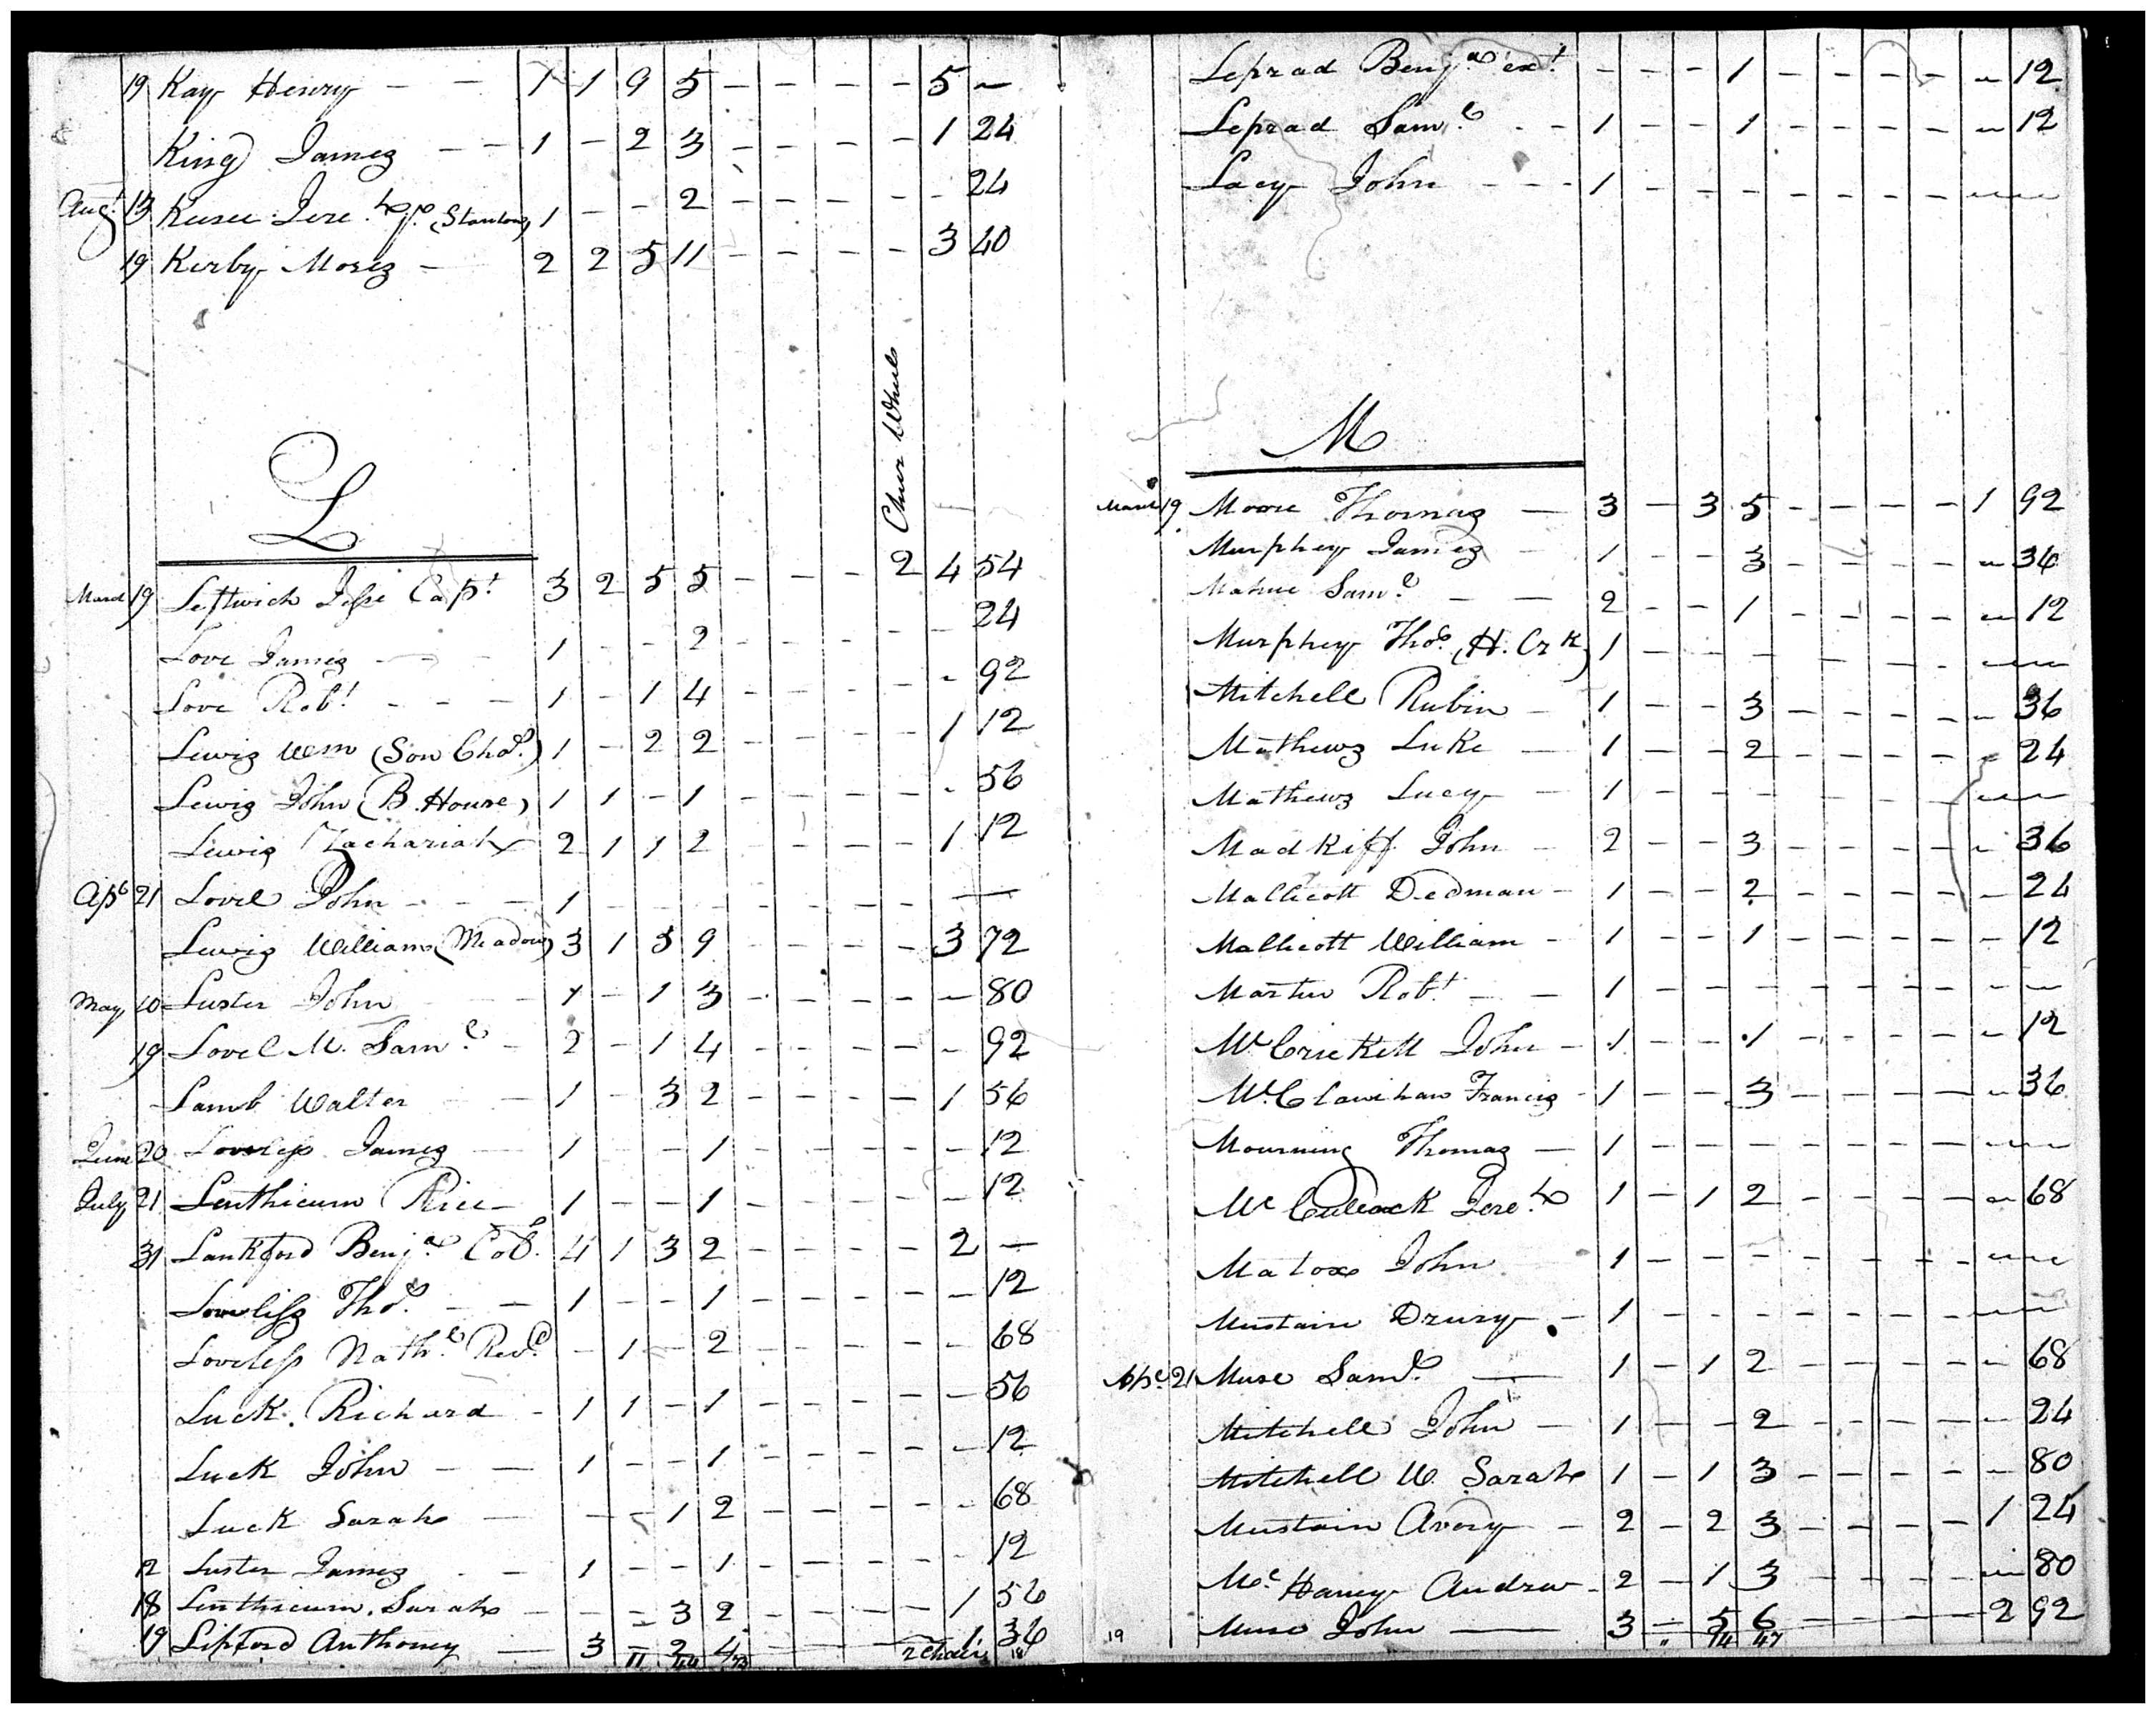 19 Kay Henry — — 1 1 9 5 — — — — 5 —
King James — — 1 — 2 3 — — — — 1 24
Augt 13 Kusee Jereh (Stantons) 1 — — 2 — — — — — 24
19 Kerby Moses — 2 2 5 11 — — — — 3 40
Chair Wheels
L
March 19 Leftwich Jesse Capt 3 2 5 5 — — — 2 4 54
Love James — — 1 — — 2 — — — — — 24
Love Robt — — — 1 — 1 4 — — — — — 92
Lewis Wm (Son Chas) 1 — 2 2 — — — — 1 12
Lewis John (B. House) 1 1 — 1 — — — — — 56
Lewis Zachariah 2 1 1 2 — — — — 1 12
Apl 21 Lovel John — — — 1 — — — — — — — —
Lewis William (Meadow) 3 1 5 9 — — — — 3 72
May 10 Luster John 1 — 1 3 — — — — — 80
19 Lovel M. Saml — 2 — 1 4 — — — — — 92
Lamb Walter — 1 — 3 2 — — — — 1 56
June 20 Loveless James — 1 — — 1 — — — — — 12
July 21 Linthicum Rice — 1 — — 1 — — — — — 12
31 Lankford Benja Col. 4 1 3 2 — — — — 2 —
Loveliss Thos — — 1 — — 1 — — — — — 12
Loveless Nathl Revd — 1 — 2 — — — — — 68
Luck Richard — 1 1 — 1 — — — — — 56
Luck John — — 1 — — 1 — — — — — 12
Luck Sarah — — — 1 2 — — — — — 68
12 Luster James — 1 — — 1 — — — — — 12
18 Linthicum Sarah — — — 3 2 — — — — 1 56
19 Lipford Anthoney — 3 — 2 4 — — — — 1 36
11 2 Chair
Leprad Benja ext — — — 1 — — — — — 12
Leprad Saml — — 1 — — 1 — — — — — 12
Lacy John — — — 1 — — — — — — — — —
M
March 19 Moore Thomas — 3 — 3 5 — — — — 1 92
Murphey James — 1 — — 3 — — — — — 36
Mahue Saml — — 2 — — 1 — — — — — 12
Murphey Thos (H. Crk) 1 — — — — — — — —
Mitchell Rubin — 1 — — 3 — — — — — 36
Mathews Luke — 1 — — 2 — — — — — 24
Mathews Lucy — 1 — — — — — — — —
Madkiff John — 2 — — 3 — — — — — 36
Mallicott Dedman — 1 — — 2 — — — — — 24
Mallicott William — 1 — — 1 — — — — — 12
Martin Robt — — 1 — — — — — — — —
McCrickett John — 1 — — 1 — — — — — 12
McClanihan Francis — 1 — — 3 — — — — — 36
Mourning Thomas — 1 — — — — — — — —
McCullock Jereh 1 — 1 2 — — — — — 68
Matox John 1 — — — — — — — —
Mustain Drury — 1 — — — — — — — —
Apl 21 Muse Saml — 1 — 1 2 — — — — — 68
Mitchell John — 1 — — 2 — — — — — 24
Mitchell W. Sarah 1 — 1 3 — — — — — 80
Mustain Avery — 2 — 2 3 — — — — 1 24
Mc Haney Andrew — 2 — 1 3 — — — — — 80
19 Muse John — 3 — 5 6 — — — — 2 92
14 47